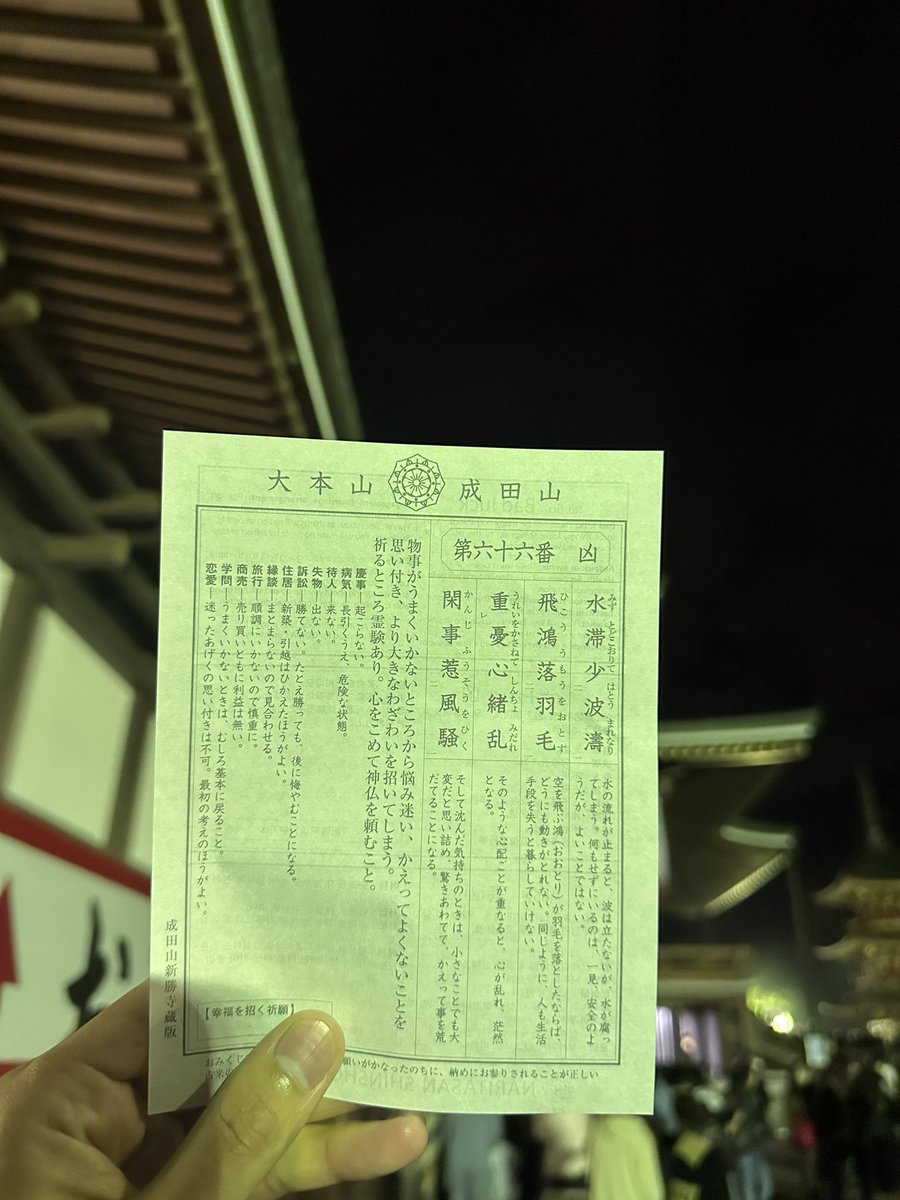 大本山 成田山
第六十六番 凶
水滞少波濤
みず とどこおりて はとう まれなり
飛鴻落羽毛
ひこう うもうをおとす
重憂心緒乱
うれいをかさねて しんちょ みだれ
閑事惹風騒
かんじ ふうそうをひく
水の流れが止まると、波は立たないが、水が腐っ
てしまう。何もせずにいるのは、一見、安全のよ
うだが、よいことではない。
空を飛ぶ鴻(おおとり)が羽毛を落としたならば、
どうにも動きがとれない。同じように、人も生活
手段を失うと暮らしていけない。
そのような心配ごとが重なると、心が乱れ、茫然
となる。
そして沈んだ気持ちのときは、小さなことでも大
変だと思い詰め、驚きあわてて、かえって事を荒
だてることになる。
物事がうまくいかないところから悩み迷い、かえってよくないことを
思い付き、より大きなわざわいを招いてしまう。
祈るところ霊験あり。心をこめて神仏を頼むこと。
慶事―起こらない。
病気―長引くうえ、危険な状態。
待人―来ない。
失物―出ない。
訴訟―勝てない。たとえ勝っても、後に悔やむことになる。
住居―新築・引越はひかえたほうがよい。
縁談―まとまらないので見合わせる。
旅行―順調にいかないので慎重に。
商売―売り買いともに利益は無い。
学問―うまくいかないときは、むしろ基本に戻ること。
恋愛―迷ったあげくの思い付きは不可。最初の考えのほうがよい。
【幸福を招く祈願】
成田山新勝寺蔵版
おみくじ
願いがかなったのちに、納めにお参りされることが正しい
古来の